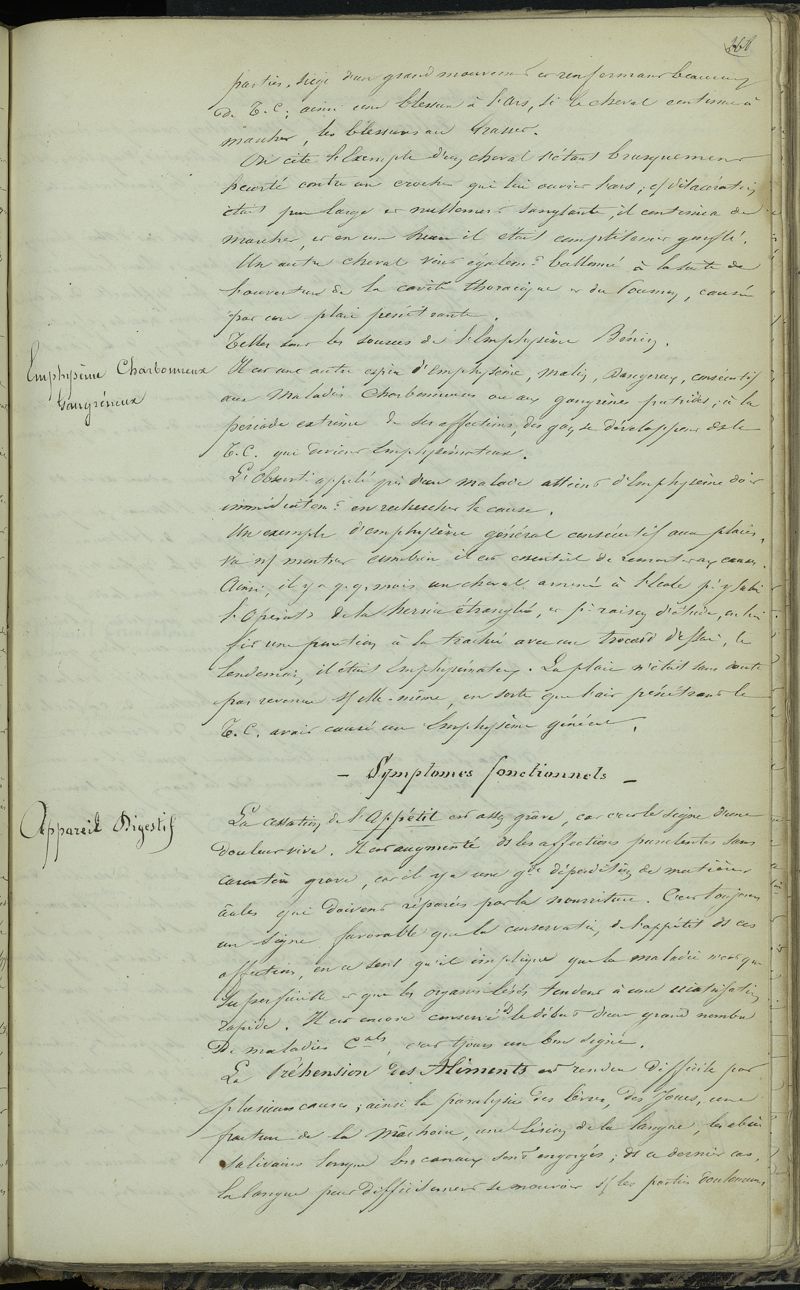 368
parties, siège d'un grand mouvement et renfermant beaucoup
de T.C; ainsi une blessure à l'ars, si le cheval continue à
marcher, les blessures au grasset.
On cite l'exemple d'un cheval s'étant brusquement
heurté contre un crochet qui lui ouvrit l'ars; cette dilacération
était peu large et nullement sanglante, il continua de
marcher, et en une heure il était complètement gonflé.
Un autre cheval vint égalemt ballonné à la suite de
l'ouverture de la cavité thoracique et du Poumon, causée
par une plaie pénétrante.
Telles sont les sources de l'Emphysème Bénin.
Emphysème Charbonneux
Gangréneux
Il est une autre espèce d'Emphysème, malin, dangereux, consécutif
aux maladies Charbonneuses ou aux gangrènes putrides; à la
période extrême de ces affections, des gaz se développent ds le
T.C. qui devient Emphysémateux.
L'Observr appelé près d'un malade atteint d'Emphysème doit
immédiatemt en rechercher la cause.
Un exemple d'emphysème général consécutif aux plaies,
va ns montrer combien il est essentiel de remonter aux causes.
Ainsi, il y a qq mois un cheval amené à l'école pr y subir
l'Opérat de la hernie étranglée, et pr raison d'étude, on lui
fit une ponction à la trachée avec un trocard d'essai, le
lendemain, il était Emphysémateux. La plaie n'était sans doute
pas revenue sr elle-même, en sorte que l'air pénétrant le
T.C. avait causé un Emphysème général.
- Symptomes fonctionnels -
Appareil Digestif
La cessation de l'Appétit est assez grave, car c'est le signe d'une
douleur vive. Il est augmenté ds les affections purulentes sans
caractère grave, car il y a une gde déperdition de matières
âcles qui doivent réparées par la nourriture. C'est toujours
un signe favorable que la conservation de l'appétit ds ces
affections, en ce sens qu'il implique que la maladie n'est que
superficielle et que les organes lésés tendent à une cicatrisation
rapide. Il est encore conservé ds le début d'un grand nombre
de maladies Cales, c'est tjours un bon signe.
La Préhension des Aliments est rendue difficile par
plusieurs causes; ainsi la paralysie des lèvres, des joues, une
fracture de la mâchoire, une lésion de la langue, les
salivaires lorsque les canaux sont engorgés; ds ce dernier cas,
la langue peut difficilement se mouvoir sr les parties douloureuses